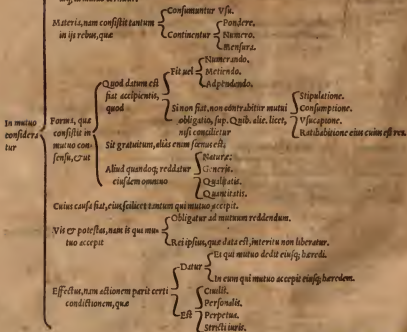 Consumuntur Vsu.
Materia, nam consistit tantum
in ijs rebus, quæ
Continentur
Pondere.
Numero.
Mensura.
In mutuo
considera
tur
Forma, quæ
consistit in
mutuo con-
sensu, & ut
Quod datum est
fiat accipientis,
quod
Fit, uel
Numerando.
Metiendo.
Adpendendo.
Si non fiat, non contrahitur mutui
obligatio, sup. Quib. alie. licet,
nisi concilietur
Stipulatione.
Consumptione.
Vsucapione.
Ratihabitione eius cuius est res.
Sit gratuitum, aliàs enim fœnus est.
Aliud quandoq; reddatur
eiusdem omnino
Naturæ.
Generis.
Qualitatis.
Quantitatis.
Cuius causa fiat, eius scilicet tantum qui mutuo accipit.
Vis & potestas, nam is qui mu-
tuo accepit
Obligatur ad mutuum reddendum.
Rei ipsius, quæ data est, interitu non liberatur.
Effectus, nam actionem parit certi
condictionem, quæ
Datur
Et qui mutuo dedit eiusq; hæredi.
In eum qui mutuo accepit eiusq; hæredem.
Est
Ciuilis.
Personalis.
Perpetua.
Stricti iuris.